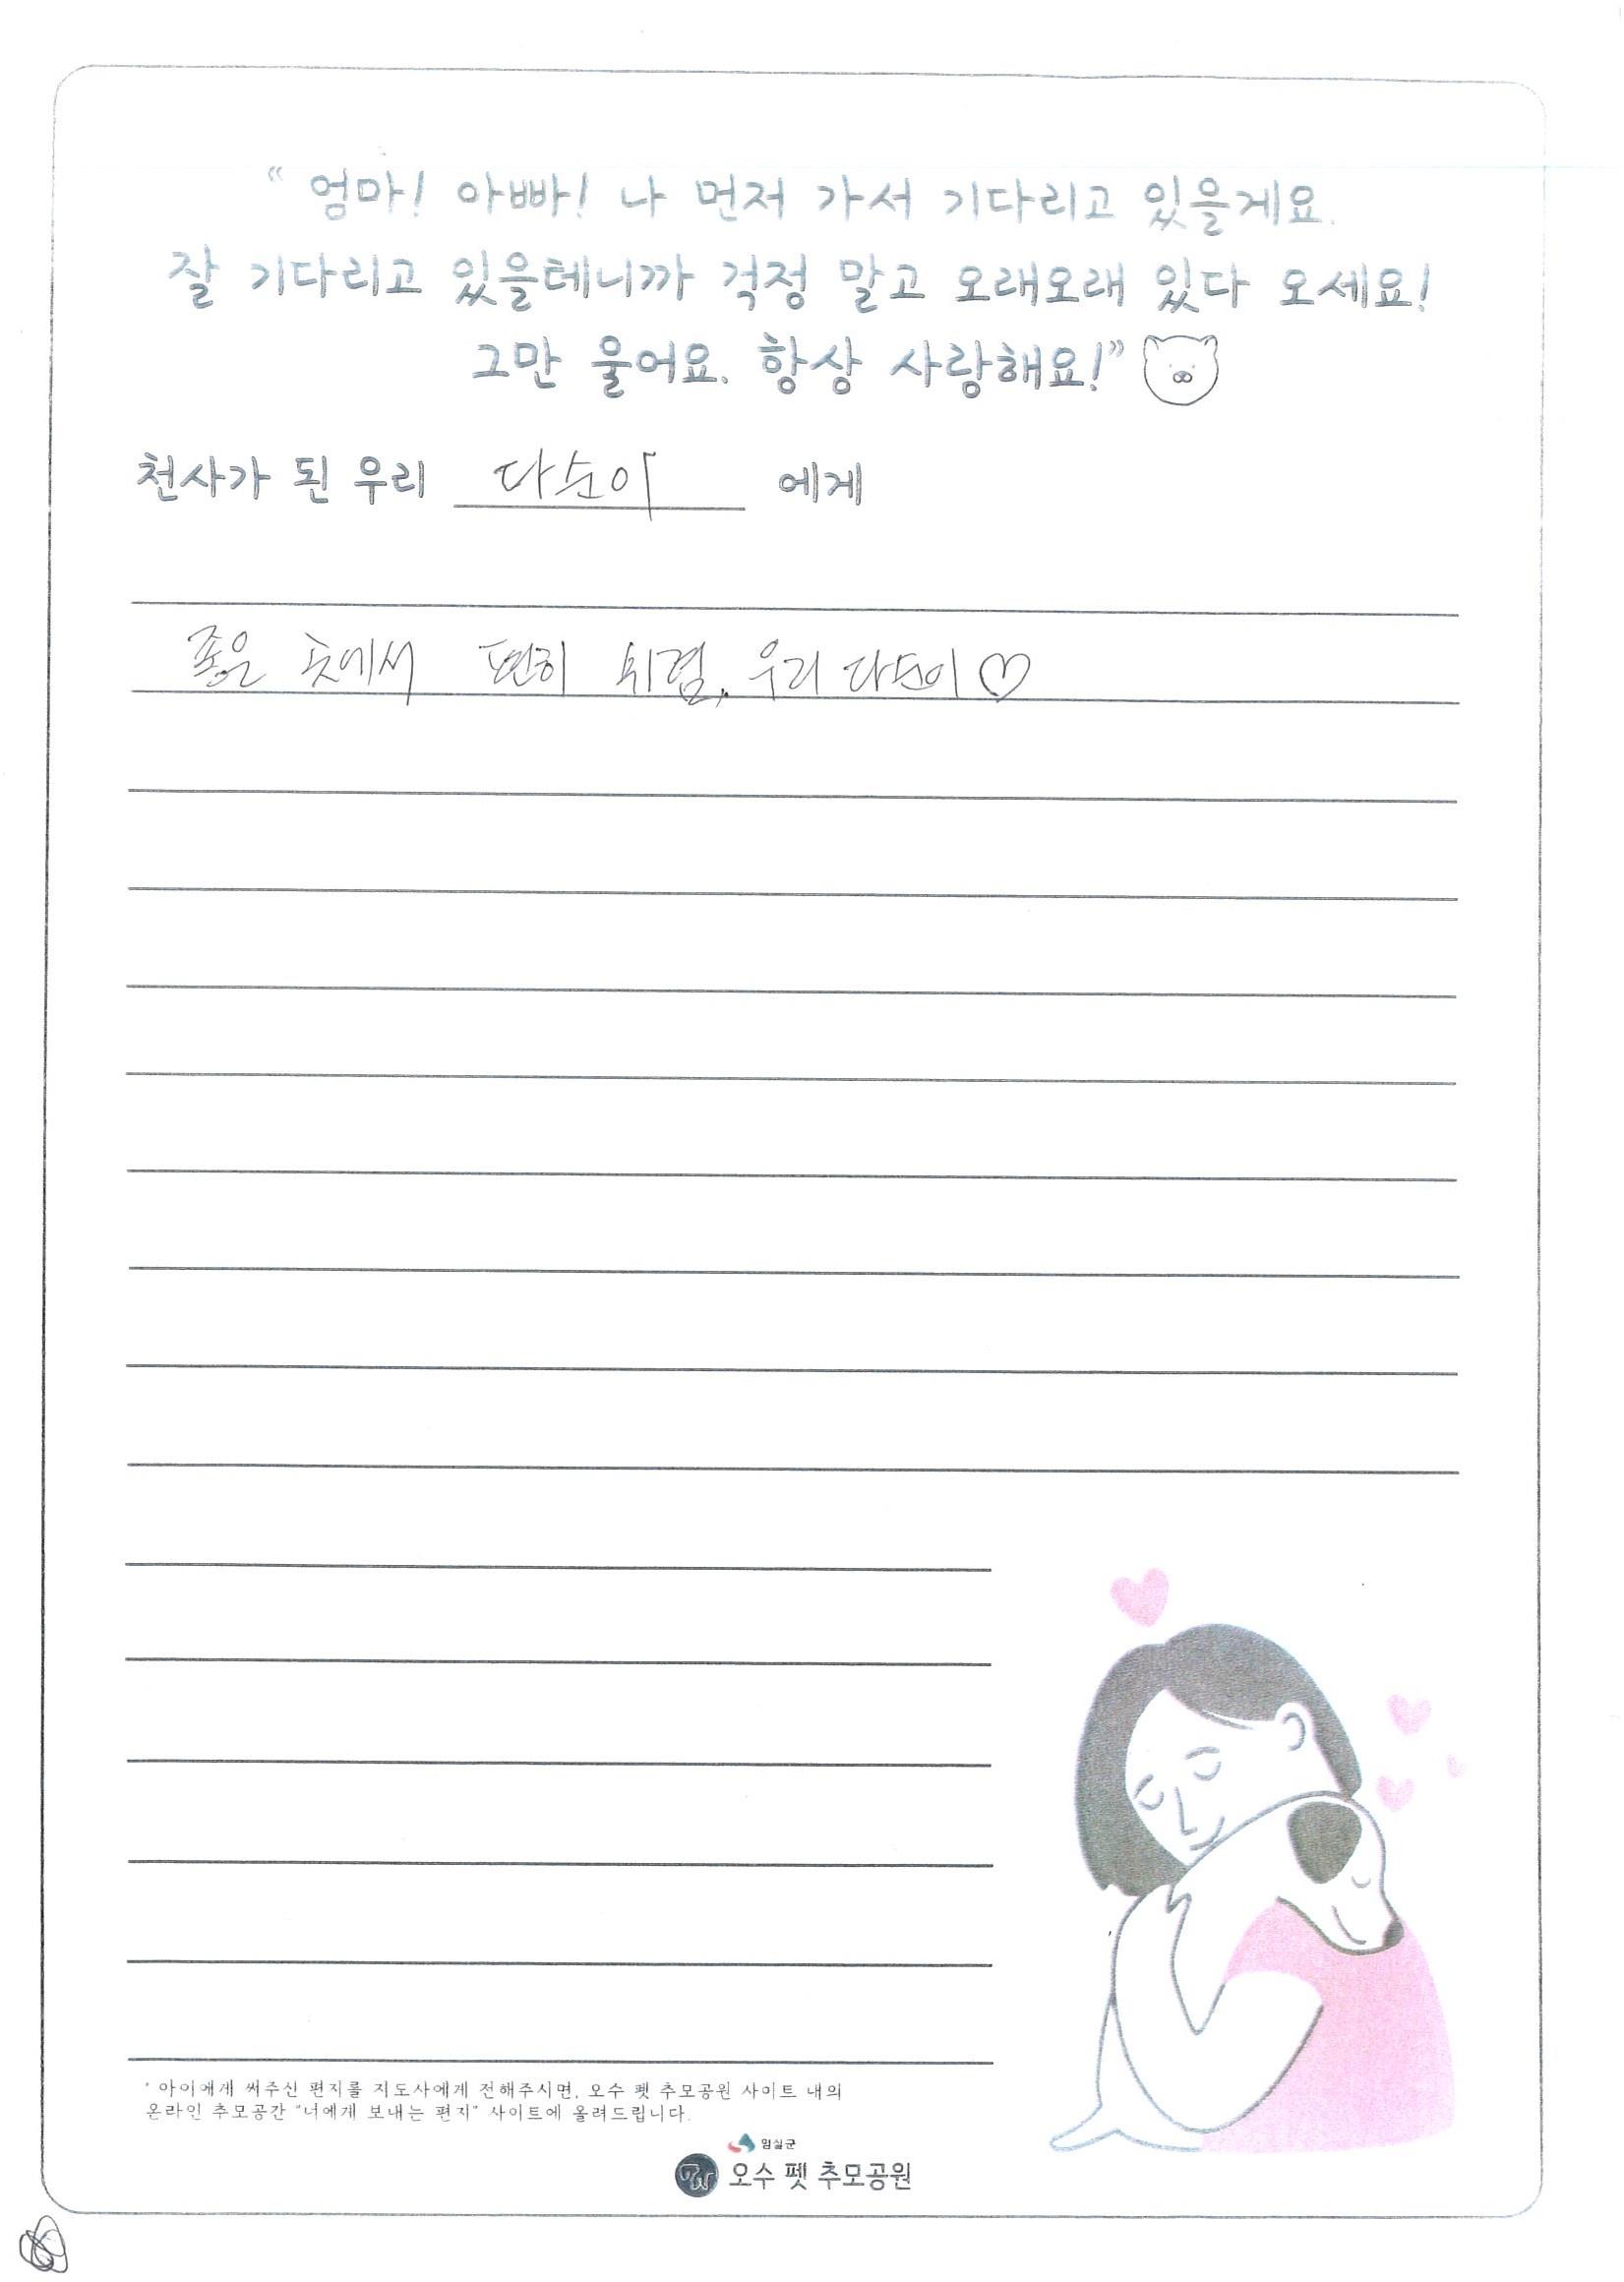 “ 엄마! 아빠! 나 먼저 가서 기다리고 있을게요.
잘 기다리고 있을테니까 걱정 말고 오래오래 있다 오세요!
그만 울어요. 항상 사랑해요!”
천사가 된 우리 다순이 에게
좋은 곳에서 편히 쉬렴, 우리 다순이♡
* 아이에게 써주신 편지를 지도사에게 전해주시면, 오수 펫 추모공원 사이트 내의
온라인 추모공간 “너에게 보내는 편지” 사이트에 올려드립니다.
임실군
오수 펫 추모공원